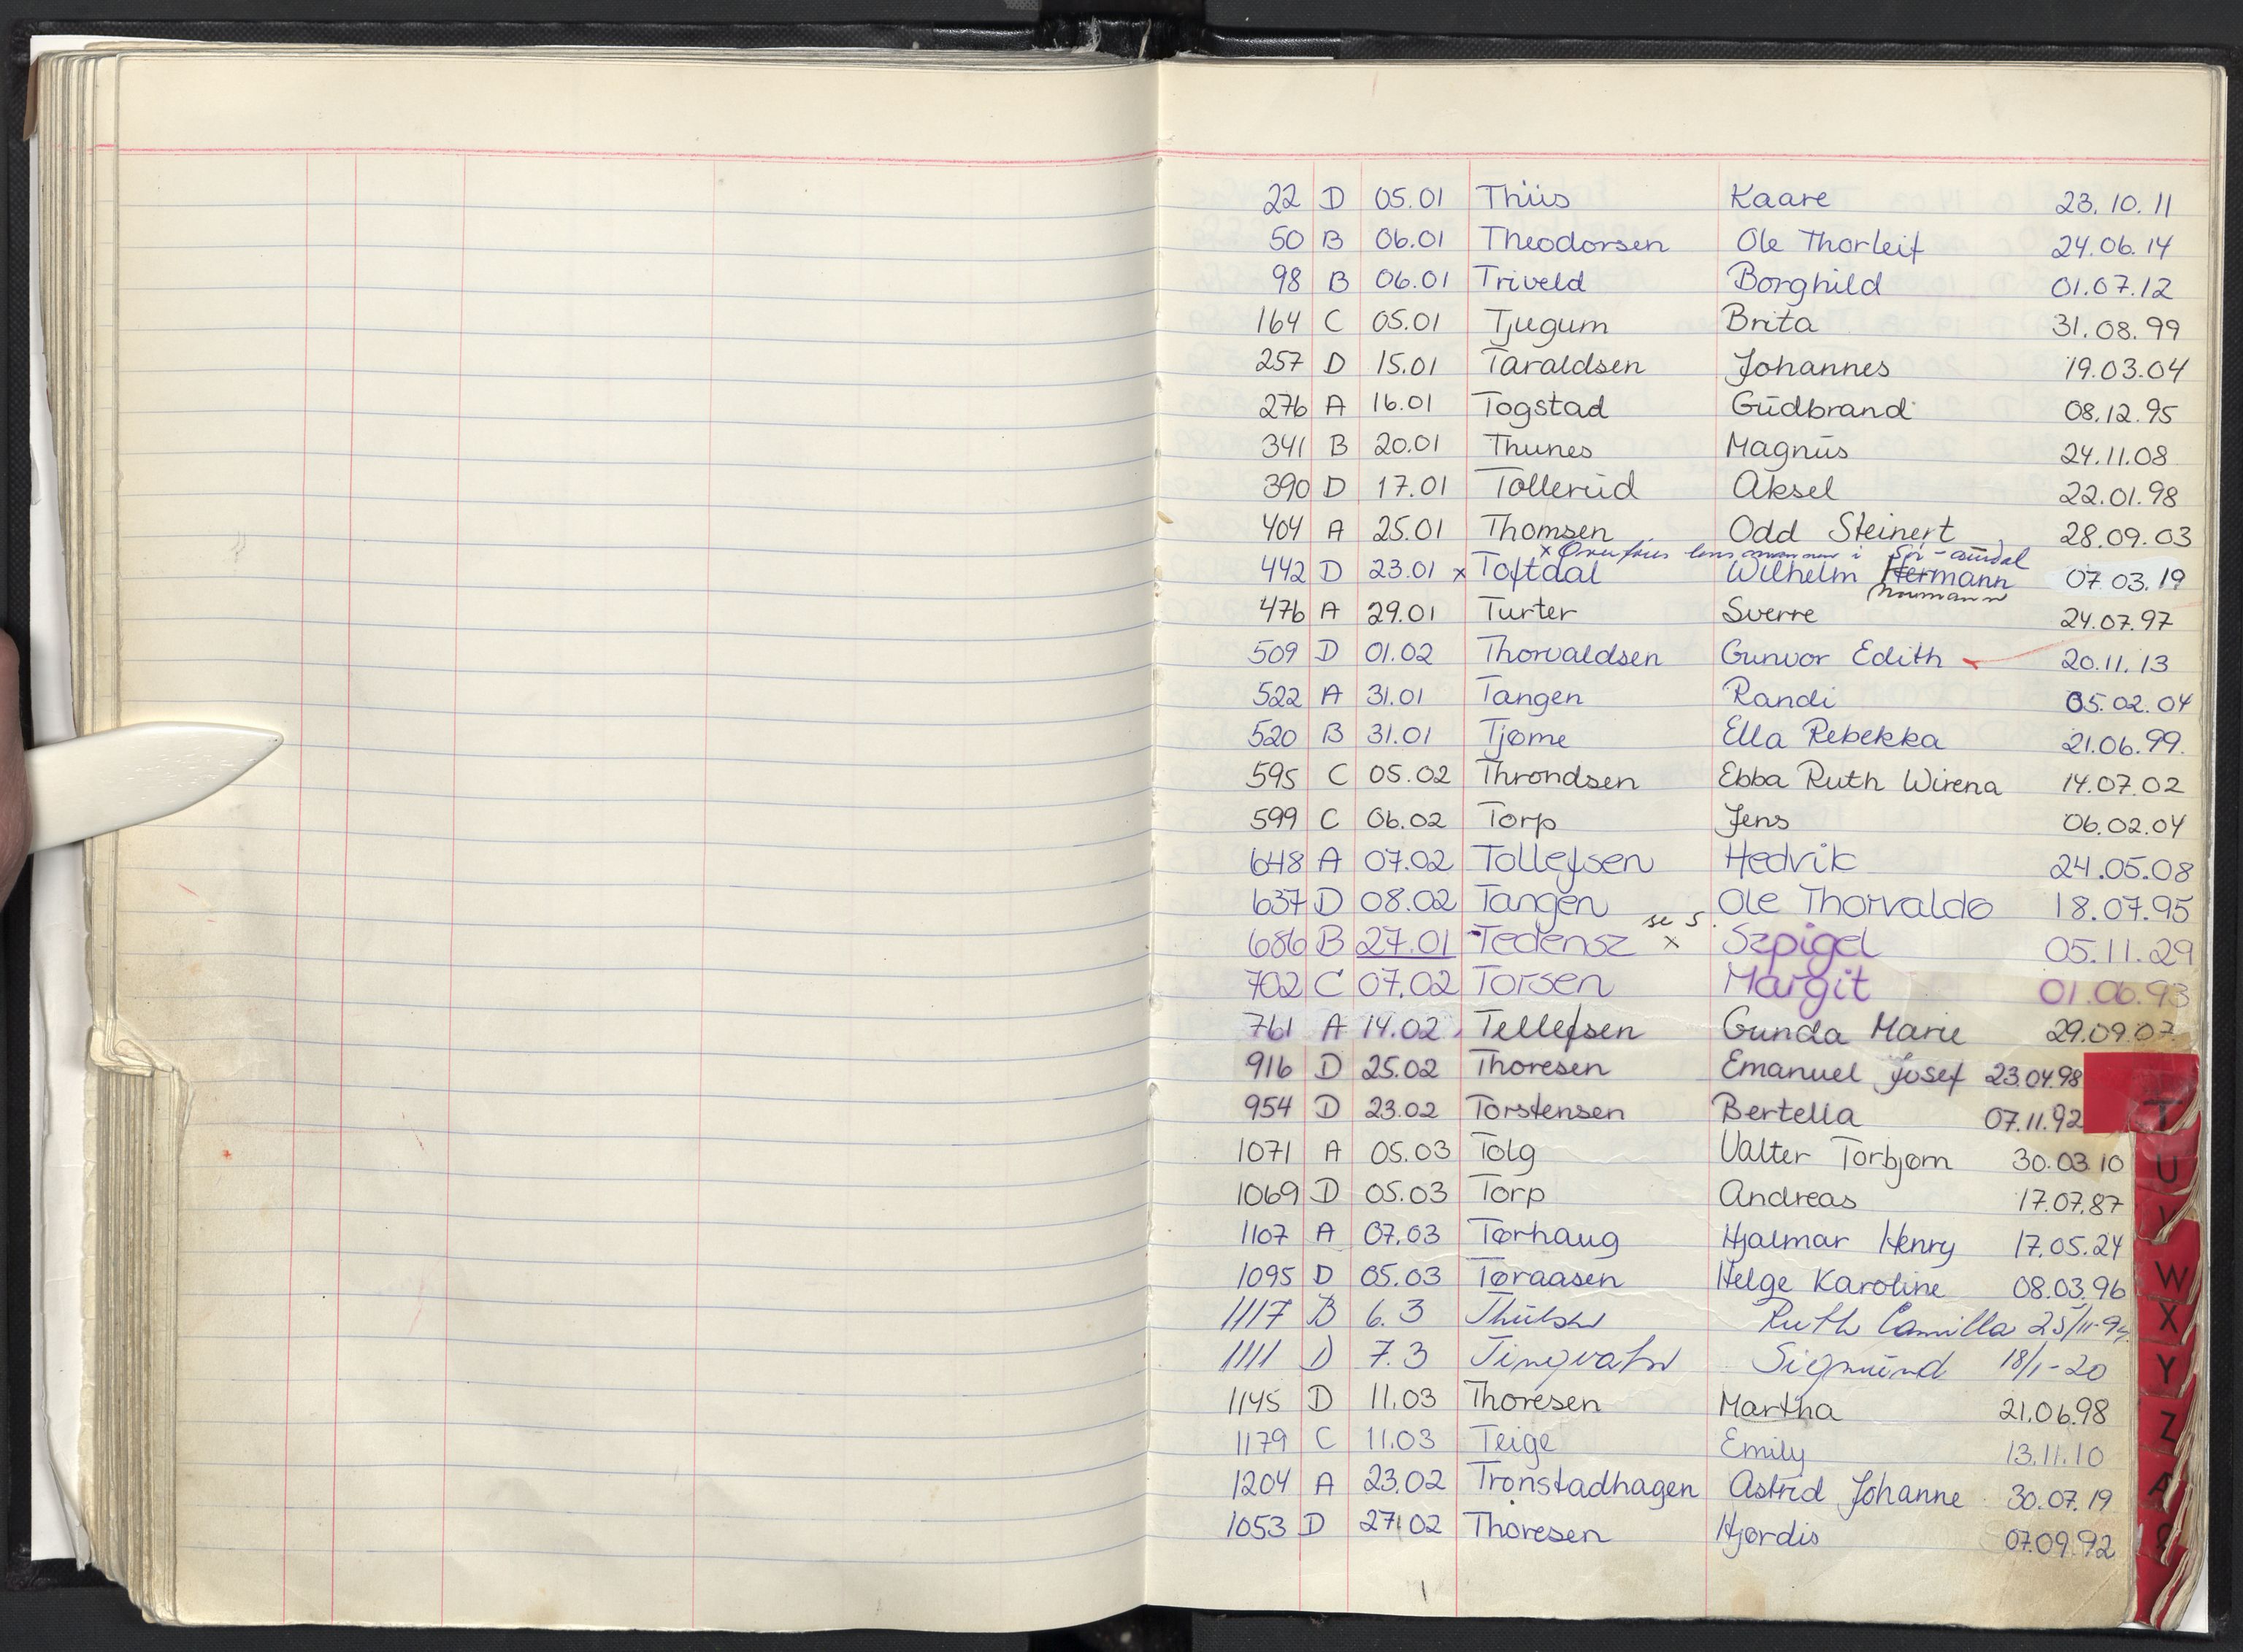 22 D 05.01 Thiis Kaare 23.10.11
50 B 06.01 Theodorsen Ole Thorleif 24.06.14
98 B 06.01 Triveld Borghild 01.07.12
164 C 05.01 Tjugum Brita 31.08.99
257 D 15.01 Taraldsen Johannes 19.03.04
276 A 16.01 Togstad Gudbrand 08.12.95
341 B 20.01 Thunes Magnus 24.11.08
390 D 17.01 Tollerud Aksel 22.01.98
404 A 25.01 Thomsen Odd Steinert 28.09.03
x i Sør-aurdal
442 D 23.01 x Toftdal Wilhelm Hermann 07.03.19
476 A 29.01 Turter Sverre 24.07.97
509 D 01.02 Thorvaldsen Gunvor Edith 20.11.13
522 A 31.01 Tangen Randi 05.02.04
520 B 31.01 Tjøme Ella Rebekka 21.06.99.
595 C 05.02 Throndsen Ebba Ruth Wirena 14.07.02
599 C 06.02 Torp Jens 06.02.04
648 A 07.02 Tollefsen Hedvik 24.05.08
637 D 08.02 Tangen Ole Thorvaldo 18.07.95
se S.
686 B 27.01 Tedensz x Szpigel 05.11.29
702 C 07.02 Torsen Margit 01.06.93
761 A 14.02 Tellefsen Gunda Marie 29.09.07
916 D 25.02 Thoresen Emanuel Josef 23.04.98
954 D 23.02 Torstensen Bertella 07.11.92
T
1071 A 05.03 Tolg Valter Torbjørn 30.03.10
U
1069 D 05.03 Torp Andreas 17.07.87
V
1107 A 07.03 Tørhaug Hjalmar Henry 17.05.24
1095 D 05.03 Tøraasen Helge Karoline 08.03.96
W
1117 B 6.3 Ruth Camilla
X
1111 D 7.3 Tingvatn Sigmund 18/1-20
Y
1145 D 11.03 Thoresen Martha 21.06.98
Z
1179 C 11.03 Teige Emily 13.11.10
1204 A 23.02 Tronstadhagen Astrid Johanne 30.07.19
1053 D 27.02 Thoresen Hjørdis 07.09.92